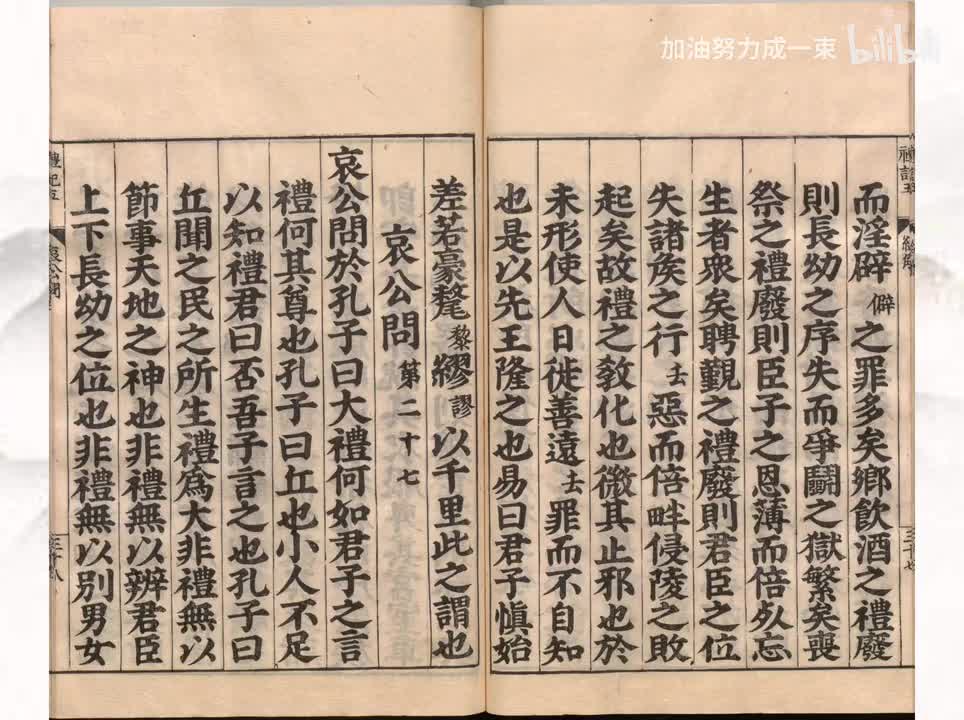 加油努力成一束
bilibili
而淫辟僻之罪多矣鄉飲酒之禮廢
則長幼之序失而爭鬬之獄繁矣喪
祭之禮廢則臣子之恩薄而倍𣦸忘
生者衆矣聘覲之禮廢則君臣之位
失諸矦之行去惡而倍畔侵陵之敗
起矣故禮之敎化也微其止邪也於
未形使人日徙善遠去罪而不自知
也是以先王隆之也易曰君子愼始
差若豪氂黎繆謬以千里此之謂也
哀公問第二十七
哀公問於孔子曰大禮何如君子之言
禮何其尊也孔子曰丘也小人不足
以知禮君曰否吾子言之也孔子曰
丘聞之民之所生禮爲大非禮無以
節事天地之神也非禮無以辨君臣
上下長幼之位也非禮無以別男女
禮記五
哀公問
三十八